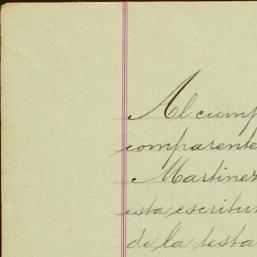 Al cump
comparente
Martinez
esta escritu
de la testa